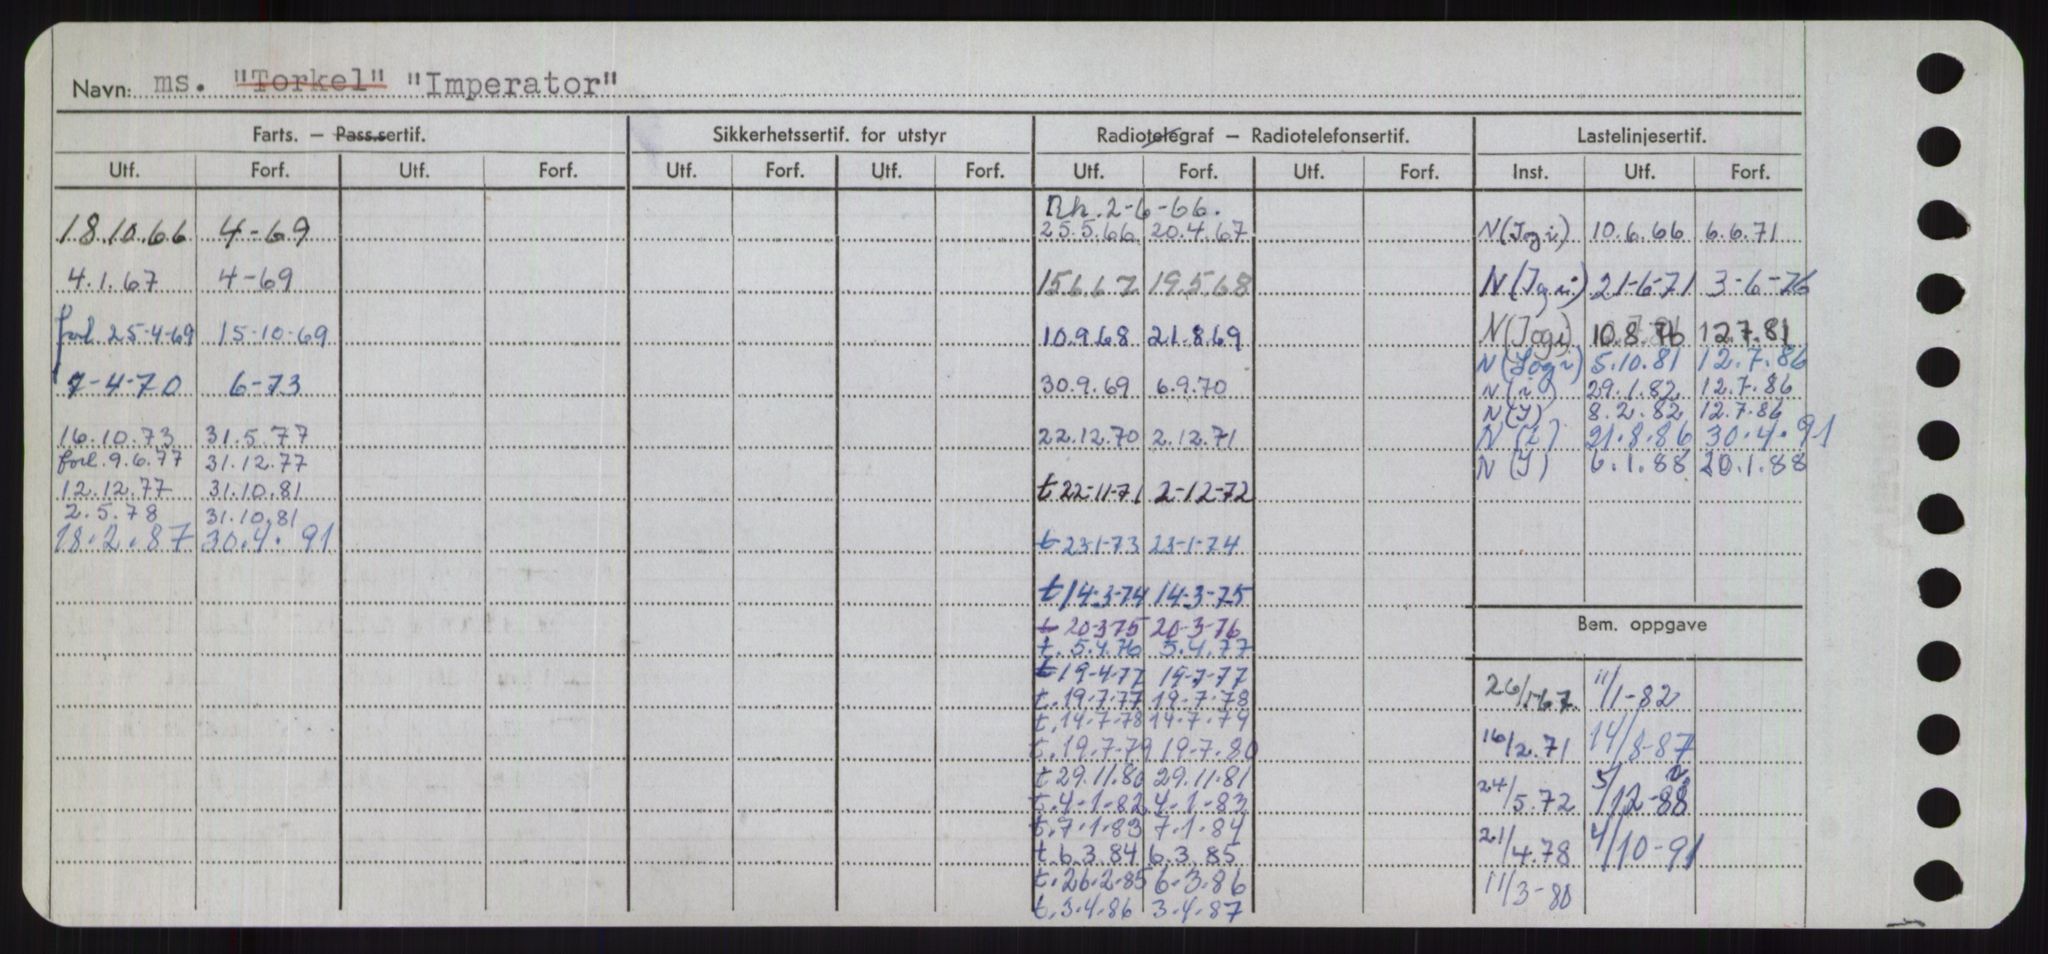 Navn: ms. "Torkel" "Imperator"
Farts. — Pass.sertif. Sikkerhetssertif. for utstyr Radiotelegraf — Radiotelefonsertif. Lastelinjesertif.
Utf. Forf. Utf. Forf. Utf. Forf. Utf. Forf. Utf. Forf. Utf. Forf. Inst. Utf. Forf.
18.10.66 4-69
4.1.67 4-69
forl. 25-4-69 15-10-69
7-4-70 6-73
16.10.73 31.5.77
forl. 9.6.77 31.12.77
12.12.77 31.10.81
2.5.78 31.10.81
18.2.87 30.4.91
2-6-66.
25.5.66 20.4.67
15.6.67 19.5.68
10.9.68 21.8.69
30.9.69 6.9.70
22.12.70 2.12.71
t 22-11-71 2-12-72
t 23-1-73 23-1-74
t 14-3-74 14-3-75
t 20-3-75 20-3-76
t. 5.4.76 5.4.77
t 19-4-77 19-7-77
t. 19.7.77 19.7.78
t. 14.7.78 14.7.79
t. 19.7.79 19.7.80
t 29.11.80 29.11.81
t. 4-1-82 4-1-83
t. 7.1.83 7.1.84
t. 6.3.84 6.3.85
t. 26.2.85 6.3.86
t. 3.4.86 3.4.87
N (Jogi) 10.6.66 6.6.71
N 21-6-71 3-6-76
N (Jogi) 10.8.76 12.7.81
N 5.10.81 12.7.86
N (i) 29.1.82 12.7.86
N (I) 8.2.82 12.7.86
N (I) 21.8.86 30.4.91
N (I) 6.1.88 20.1.88
Bem. oppgave
26/1-67 11/1-82
16/2.71 14/8-87
24/5.72 5/12-88
21/4.78 4/10-91
11/3-80